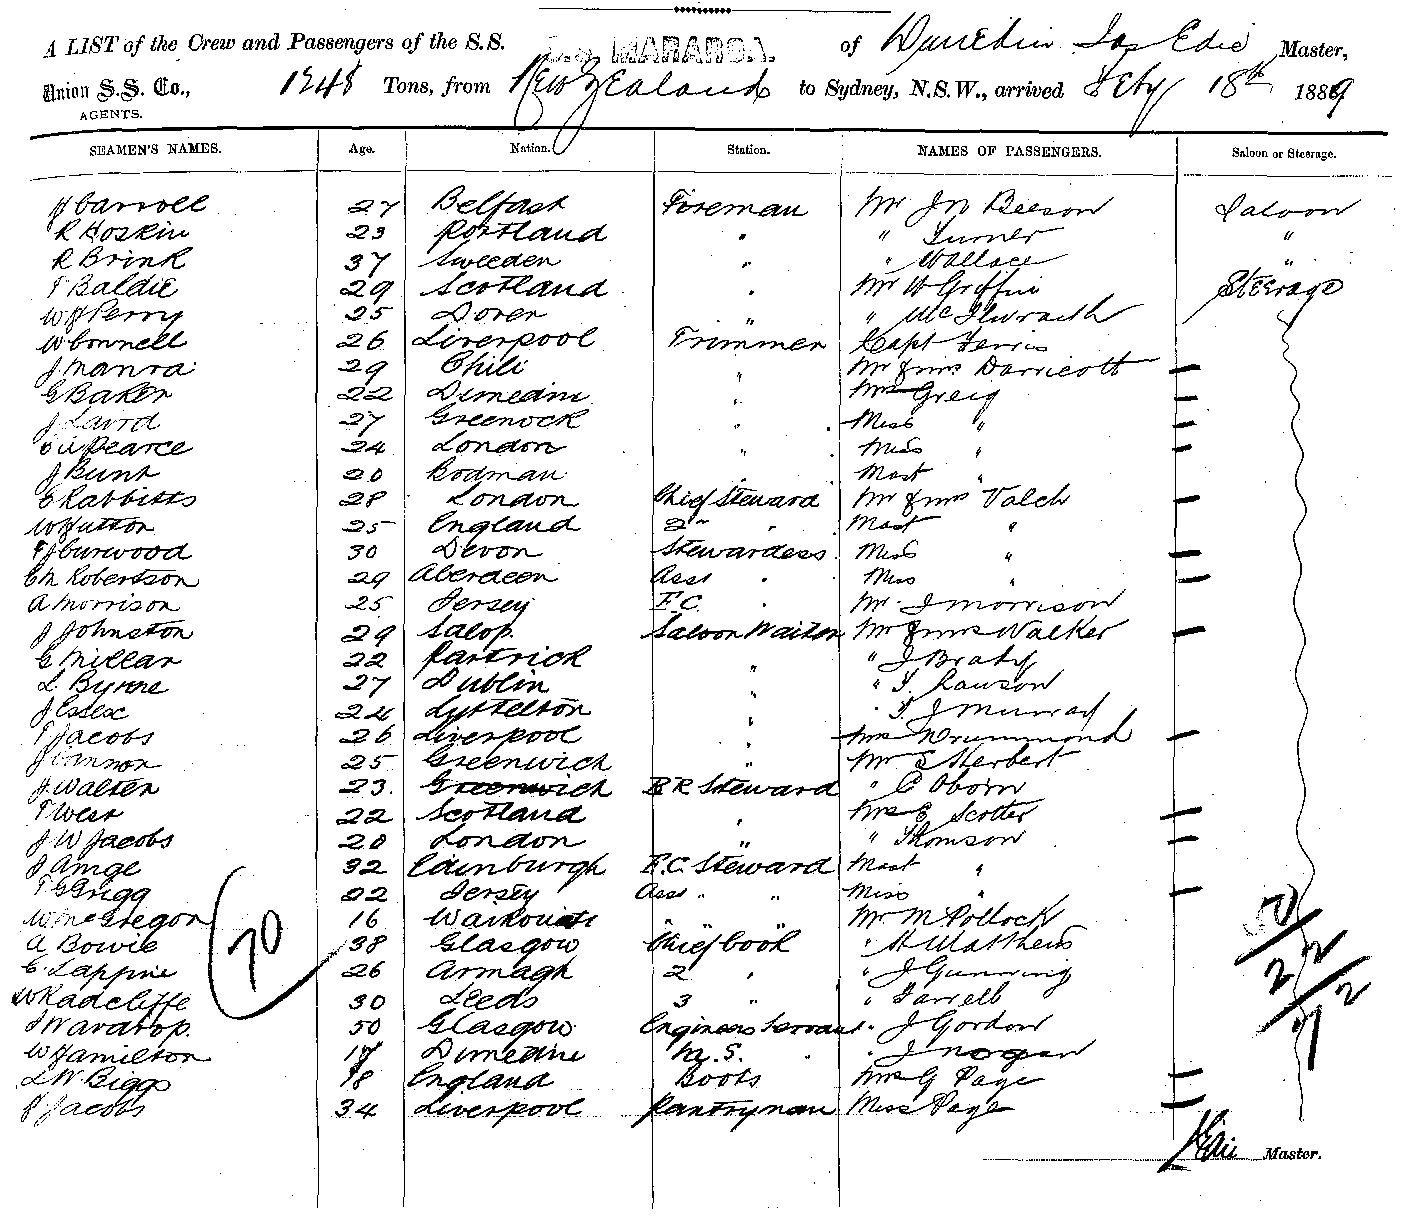 A LIST of the Crew and Passengers of the S.S. S.S. MARAROA. of Dunedin Jas Edie Master,
Union S.S. Co., 1248 Tons, from New Zealand to Sydney, N.S.W., arrived Feby 18th 1889
AGENTS.
SEAMEN'S NAMES. Age. Nation. Station. NAMES OF PASSENGERS. Saloon or Steerage.
J Carroll 27 Belfast Foreman Mr Jn Beeson Saloon
R Hoskin 23 Portland " " Turner "
R Brink 37 Sweeden " " Wallace "
T Baldie 29 Scotland " Mr W Griffin Steerage
W J Perry 25 Dover " " McIlwraith
W Connell 26 Liverpool Trimmer Capt Ferris
J Manra 29 Chili " Mr & Mrs Darricott
G Baker 22 Dunedin " Mrs Greig
J Laird 27 Greenock " Miss "
Pearce 24 London " Miss "
J Bunt 20 Bodman " Mast "
C Rabbitts 28 London Chief Steward Mr & Mrs Valch
W Hutton 25 England 2nd " Mast "
Curwood 30 Devon Stewardess Miss "
C M Robertson 29 Aberdeen Asst " Miss "
A Morrison 25 Jersey F.C. " Mr J Morrison
J Johnston 29 Salop Saloon Waiter Mr & Mrs Walker
G Millar 22 Partrick " " J Brady
L Byrne 27 Dublin " " T. Rawson
J Essex 24 Lyttelton " " T. J Murray
T Jacobs 26 Liverpool " Mrs Drummond
J Cannon 25 Greenwich " Mr S Herbert
J Walter 23 Greenwich B R Steward " C Oborn
T West 22 Scotland " Mrs E Scotter
J W Jacobs 20 London " " Thomson
J Amge 32 Edinburgh F.C. Steward Mast "
T G Grigg 22 Jersey Asst " " Miss "
W McGregor 16 " " Mr M Pollock
A Bowie 38 Glasgow Chief Cook " H Matthews
C. Lappin 26 Armagh 2 " " J Gunning
W Radcliffe 30 Leeds 3 " " Farrell
J Wardrop 50 Glasgow Engineers Servant " J Gordon
W Hamilton 17 Dunedin M.S. " " J Nogan
L W Biggs 18 England Boots Mrs G Page
P Jacobs 34 Liverpool Pantryman Miss Page
70
50/2
2/2
72
J Edie Master.